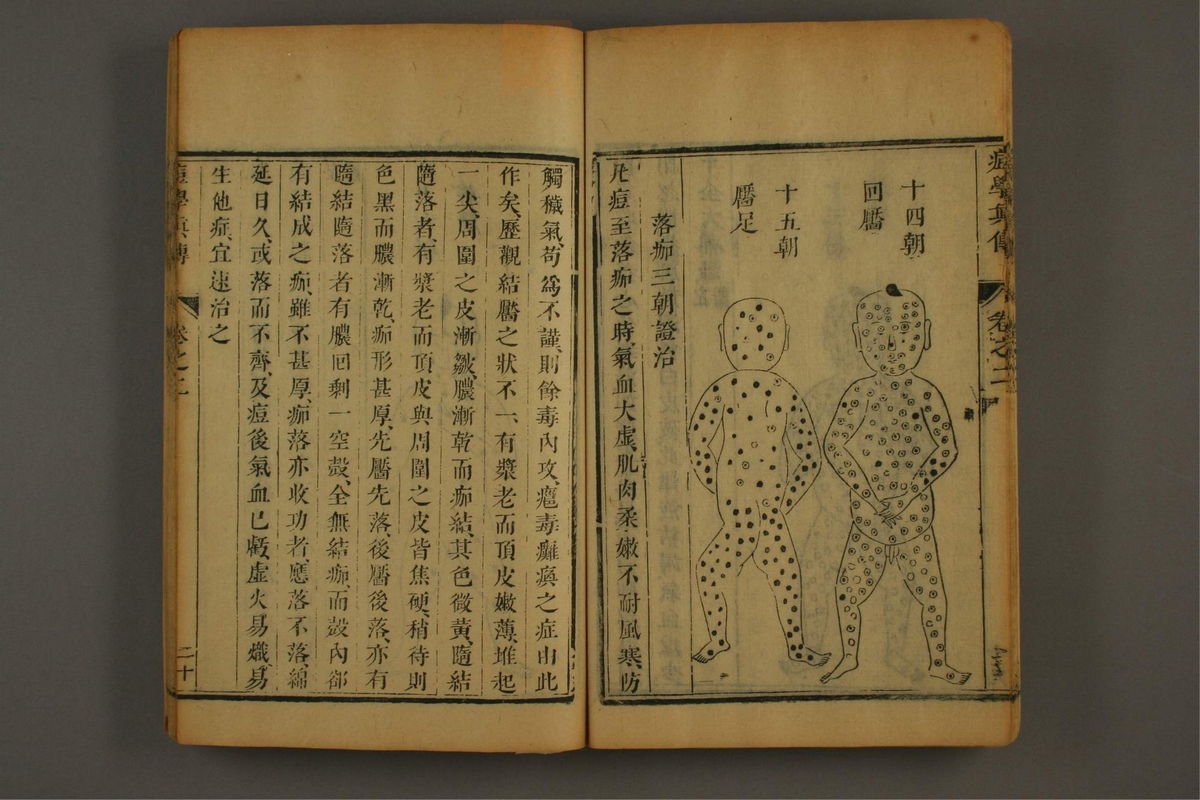 痘學眞傳
卷之二
十四朝
回靨
十五朝
靨足
落痂三朝證治
凡痘至落痂之時、氣血大虛、肌肉柔嫩、不耐風寒、防
觸穢氣、苟爲不謹、則餘毒內攻、癰毒癱瘓之症由此
作矣、歷觀結靨之狀不一、有漿老而頂皮嫩薄、堆起
一尖、周圍之皮漸皺、膿漸乾而痂結、其色微黃、隨結
隨落者、有漿老而頂皮與周圍之皮皆焦硬、稍待則
色黑而膿漸乾、痂形甚厚、先靨先落、後靨後落、亦有
隨結隨落者、有膿回剩一空殼、全無結痂、而殼內却
有結成之痂、雖不甚厚、痂落亦收功者、應落不落、綿
延日久、或落而不齊、及痘後氣血已虧、虛火易熾、易
生他症、宜速治之
痘學眞傳
卷之二
二十